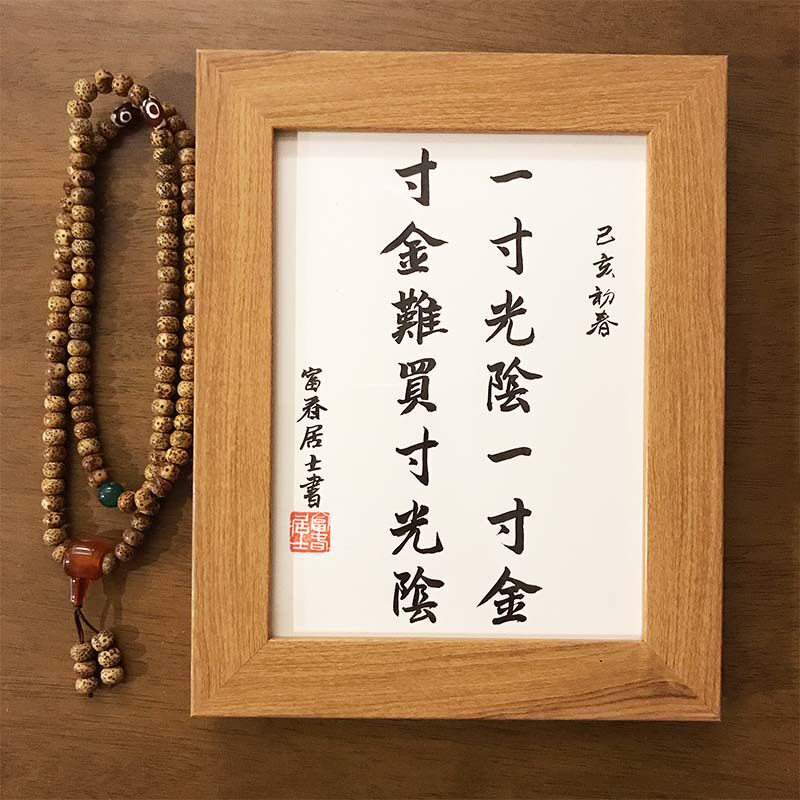 己亥初春
一寸光陰一寸金
寸金難買寸光陰
富春居士書
富春居士